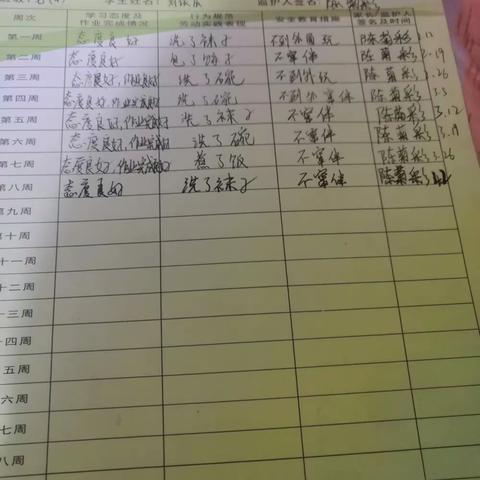 学生姓名: 监护人签名:
周次 学习态度及作业完成情况 行为规范劳动实践表现 安全教育措施 家长/监护人签名及时间
第一周 态度良好 洗了袜子 不到外面玩 陈菊彩
第二周 态度良好 不窜伴 陈菊彩 2.19
第三周 态度良好,作业良好 洗了碗 不到外玩 陈菊彩 2.26
第四周 态度良好,作业良好 洗了碗 不到外窜伴 陈菊彩 3.5
第五周 态度良好,作业完成好 洗了袜子 不窜伴 陈菊彩 3.12
第六周 态度良好,作业完成好 洗了碗 不窜伴 陈菊彩 3.19
第七周 态度良好,作业完成好 煮了饭 不窜伴 陈菊彩 3.26
第八周 态度良好 洗了袜子 不窜伴 陈菊彩
第九周
第十周
十一周
十二周
十三周
十四周
十五周
十六周
十七周
十八周